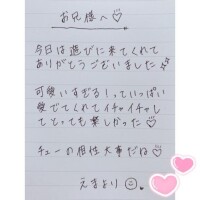 お兄様へ♡
今日は遊びに来てくれて
ありがとうございました
可愛いすぎる!っていっぱい
愛でてくれてイチャイチャし
てとっても楽しかった♡
チューの相性大事だね♡
えまより☺